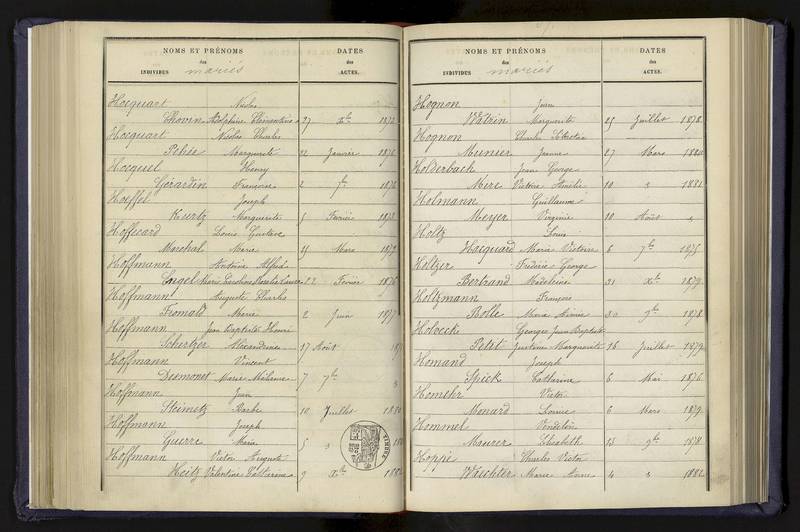 NOMS ET PRÉNOMS
des
INDIVIDUS mariés
DATES
des
ACTES.
Hocquart Nicolas
Chovin Adolphine Clémentine 27 Xbre 1872
Hocquart Nicolas Charles
Pihée Marguerite 12 Janvier 1876
Hocquel Henry
Gérardin Françoise 2 7bre 1876
Hoeffel Joseph
Kurtz Marguerite 5 Février 1878
Hoffecard Louis Gustave
Marchal Marie 29 Mars 1879
Hoffmann Antoine Alfred
Engel Marie Caroline Rosalie Laure 22 Février 1876
Hoffmann Auguste Charles
Fromald Marie 2 Juin 1877
Hoffmann Jean Baptiste Henri
Schertzer Alexandrine 17 Août
Hoffmann Vincent
Desmonet Marie Mélanie 7 7bre
Hoffmann Jean
Steimetz Barbe 10 Juillet 1880
Hoffmann Joseph
Guerre Maria 5
Hoffmann Victor Auguste
Heitz Valentine Catherine 9 Xbre 1882
NOMS ET PRÉNOMS
des
INDIVIDUS mariés
DATES
des
ACTES.
Hognon Jean
Watrin Marguerite 29 Juillet 1878
Hognon Charles Sébastien
Munier Jeanne 27 Mars 1880
Holderbach Jean George
Mere Victoire Amélie 10 1881
Holmann Guillaume
Meyer Virginie 10 Août
Holtz Louis
Hacquard Marie Victoire 6 7bre 1875
Holtzer Frédéric George
Bertrand Madeleine 31 Xbre 1879
Holtzmann François
Bolle Maria Aimée 30 9bre 1878
Holveck Georges Jean Baptiste
Petit Justine Marguerite 16 Juillet 1879
Homand Joseph
Speck Catherine 6 Mai 1876
Homehr Victor
Monard Louise 6 Mars 1879
Hommel Vendelin
Maurer Elisabeth 13 9bre 1878
Hoppé Charles Victor
Waechter Marie Anne 4 1882